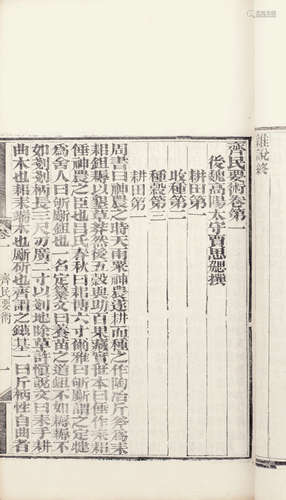 齊民要術卷第一
後魏高陽太守賈思勰撰
耕田第一
收種第二
種穀第三
耕田第一
周書曰神農之時天雨粟神農遂耕而種之作陶冶斤斧為耒
耜鉏耨以墾草莽然後五穀興助百果藏實世本曰倕作耒耜
倕神農之臣也呂氏春秋曰耜博六寸爾雅曰斪斸謂之定犍
為舍人曰斪斸鉏也一名定纂文曰養苗之道鉏不如耨耨不
如剗剗柄長三尺刃廣二寸以剗地除草許慎說文曰耒手耕
曲木也耜耒端木也斸斫也齊謂之鎡基一曰斤柄性自曲者
卷一
齊民要術
一
雜說終